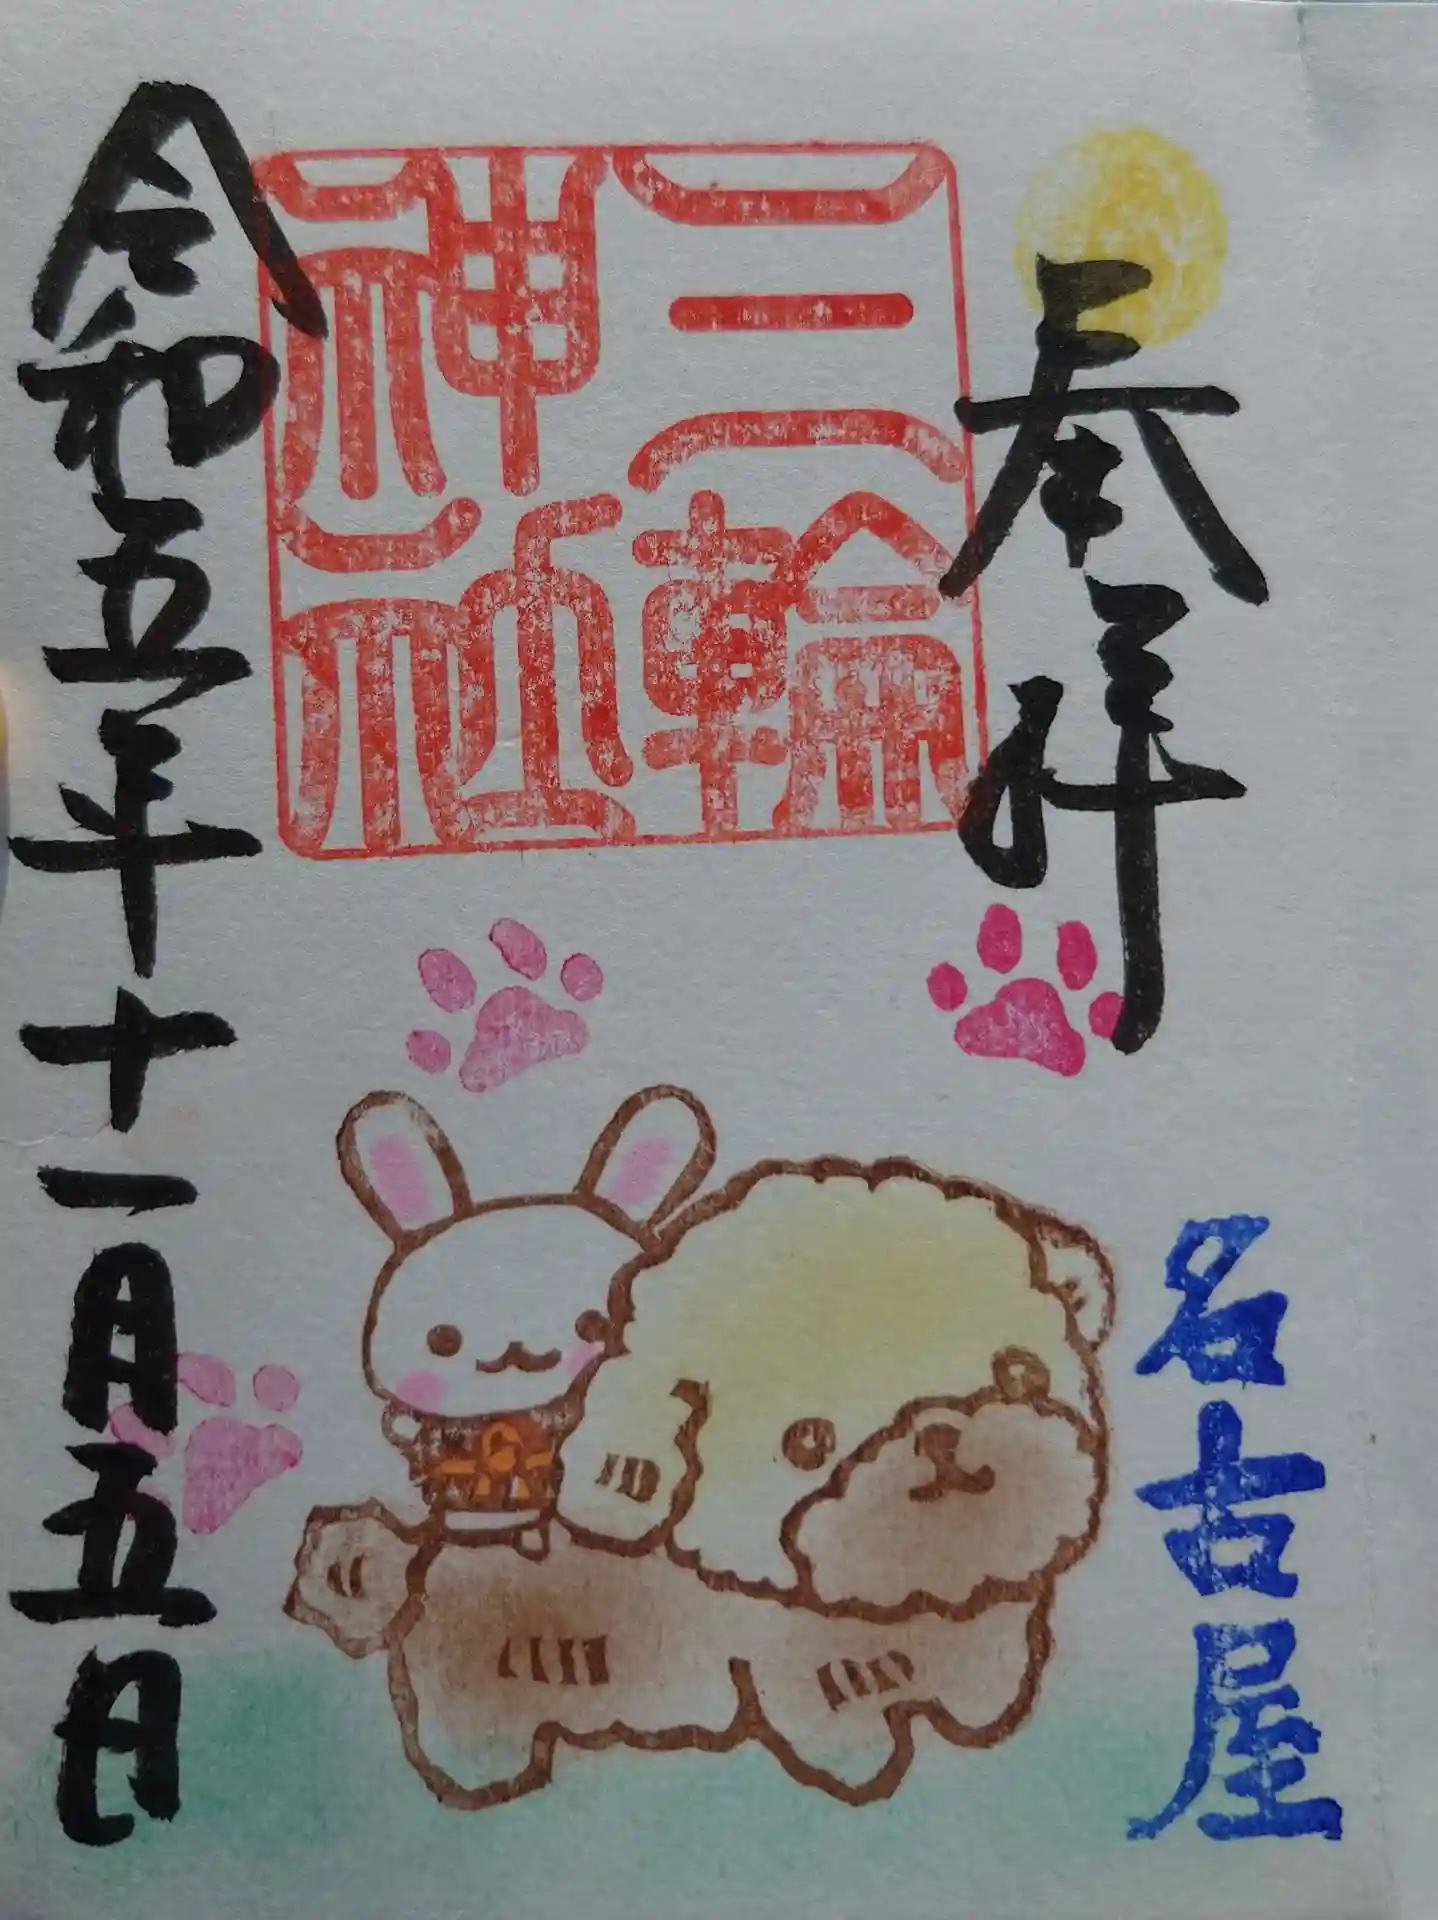 奉拝
名古屋
三輪
神社
令和五年十一月五日